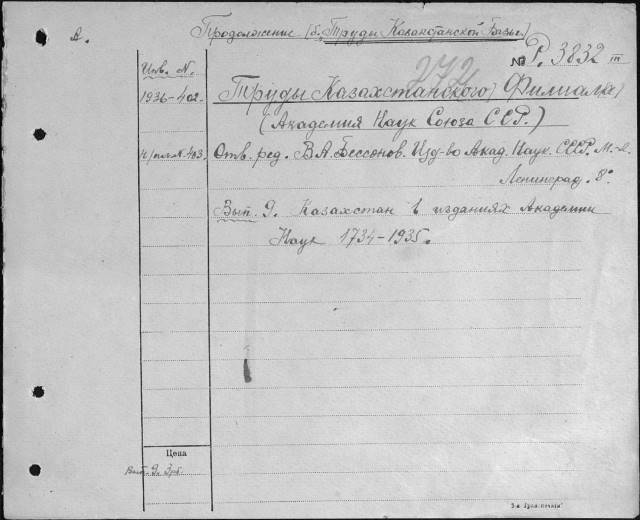 Продолжение (б. Труды Казакстанской Базы.)
№ Р. 3832 III
Инв. N.
272
1936-402.
Труды Казахстанского Филиала
(Академия Наук Союза ССР.)
N. 403.
Отв. ред. В.А. Бессонов. Изд-во Акад. Наук СССР. М.-Л.
Ленинград. 8°
Вып. 9. Казахстан в изданиях Академии
Наук 1734-1935.
Цена
Вып. 9. 3 рб.